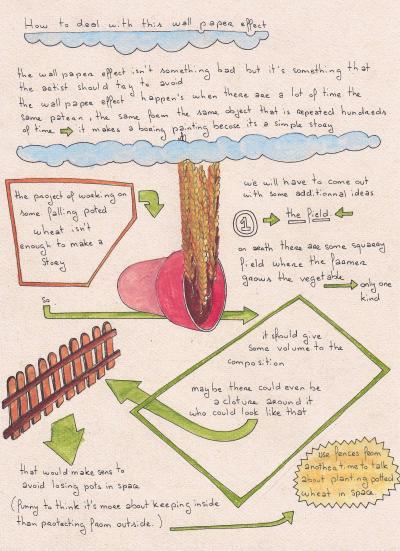 How to deal with this wall paper effect
the wall paper effect isn't something bad but it's something that
the artist should try to avoid
the wall paper effect happen's when there are a lot of time the
same patern, the same form the same object that is repeated hundreds
of time ⇒ it makes a boring painting becose its a simple story
the project of working on
some falling poted
wheat isn't
enough to make a
story
we will have to come out
with some additionnal ideas
1 → the field ←
on earth there are some squarry
field where the farmer
grows the vegetable
→ only one
kind
so
it should give
some volume to the
composition
maybe there could even be
a cloture around it
who could look like that
that would make sens to
avoid losing pots in space
(funny to think it's more about keeping inside
than protecting from outside.)
use fences from
another time to talk
about planting potted
wheat in space